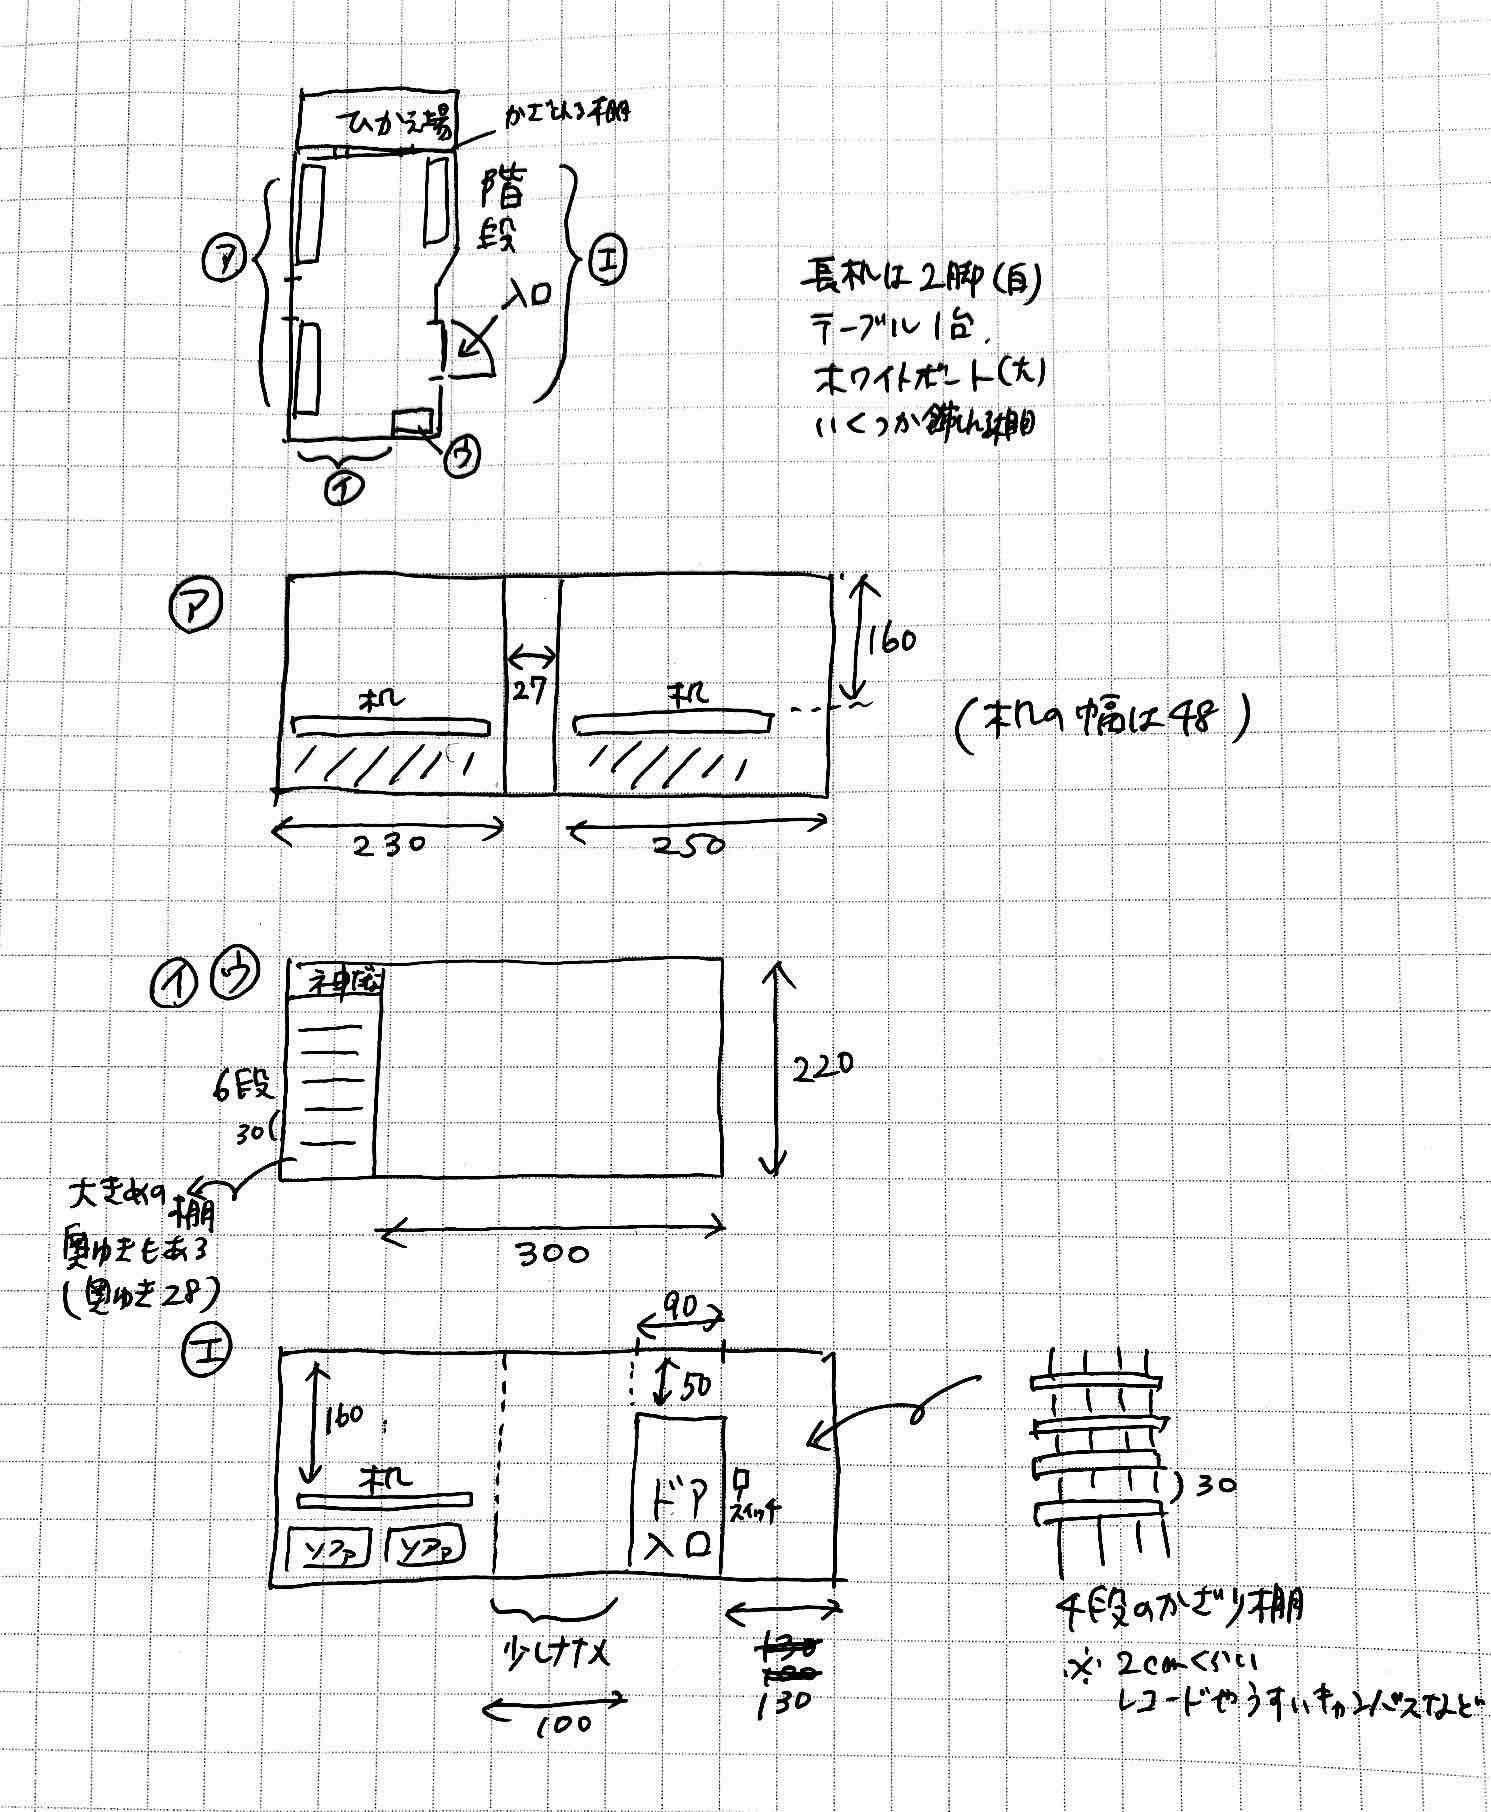 ひかえ場
かざれる棚
階段
入口
ア
エ
イ
ウ
長机は2脚(白)
テーブル1台.
ホワイトボード(大)
いくつか飾れる棚
ア
机
27
机
160
230
250
(机の幅は48)
イ ウ
神座
6段
30
220
300
大きめの棚
奥ゆきもある
(奥ゆき28)
エ
90
50
160
机
ソファ
ソファ
ドア
入口
スイッチ
少しナナメ
100
130
100
130
30
4段のかざり棚
※ 2cmくらい
レコードやうすいキャンバスなど